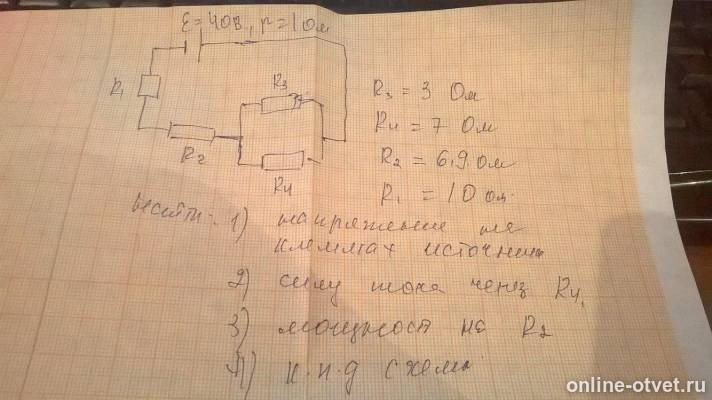 ε = 40В, r = 1 Ом
R1
R2
R3
R4
R3 = 3 Ом
R4 = 7 Ом
R2 = 6,9 Ом
R1 = 10 Ом
1) напряжение на
клеммах источник
2) силу тока через R4.
3) мощност на R2
4) к.п.д схемы
online-otvet.ru